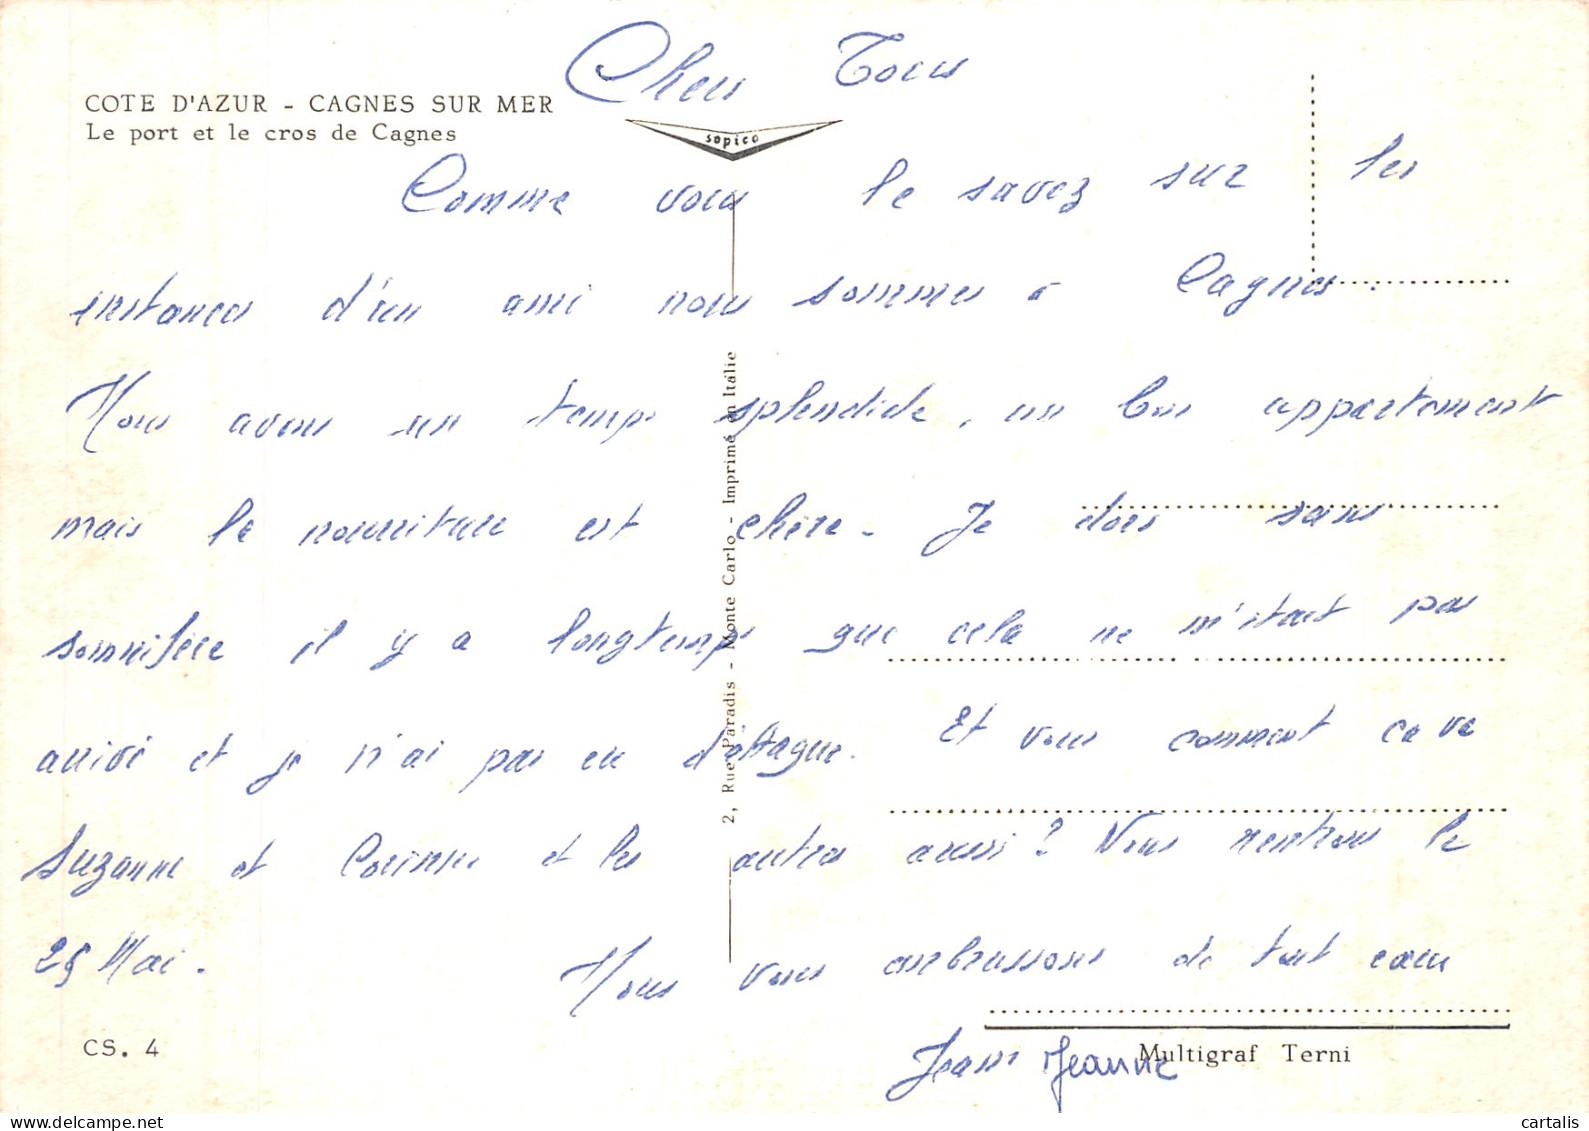 Chers Tous
COTE D'AZUR - CAGNES SUR MER
Le port et le cros de Cagnes
sopico
Comme vous le savez sur les
instances d'un ami nous sommes à Cagnes.
Nous avons un temps splendide, un bon appartement
mais la nourriture est chère - Je dors sans
somnifère il y a longtemps que cela ne m'était pas
arrivé et je n'ai pas eu d'attaque. Et vous comment ca va
Suzanne et Corinne et les autres aussi? Nous rentrons le
25 Mai.
Nous vous embrassons de tout cœur
Jeanne
2, Rue Paradis - Monte Carlo - Imprimé en Italie
CS. 4
Multigraf Terni
cartalis